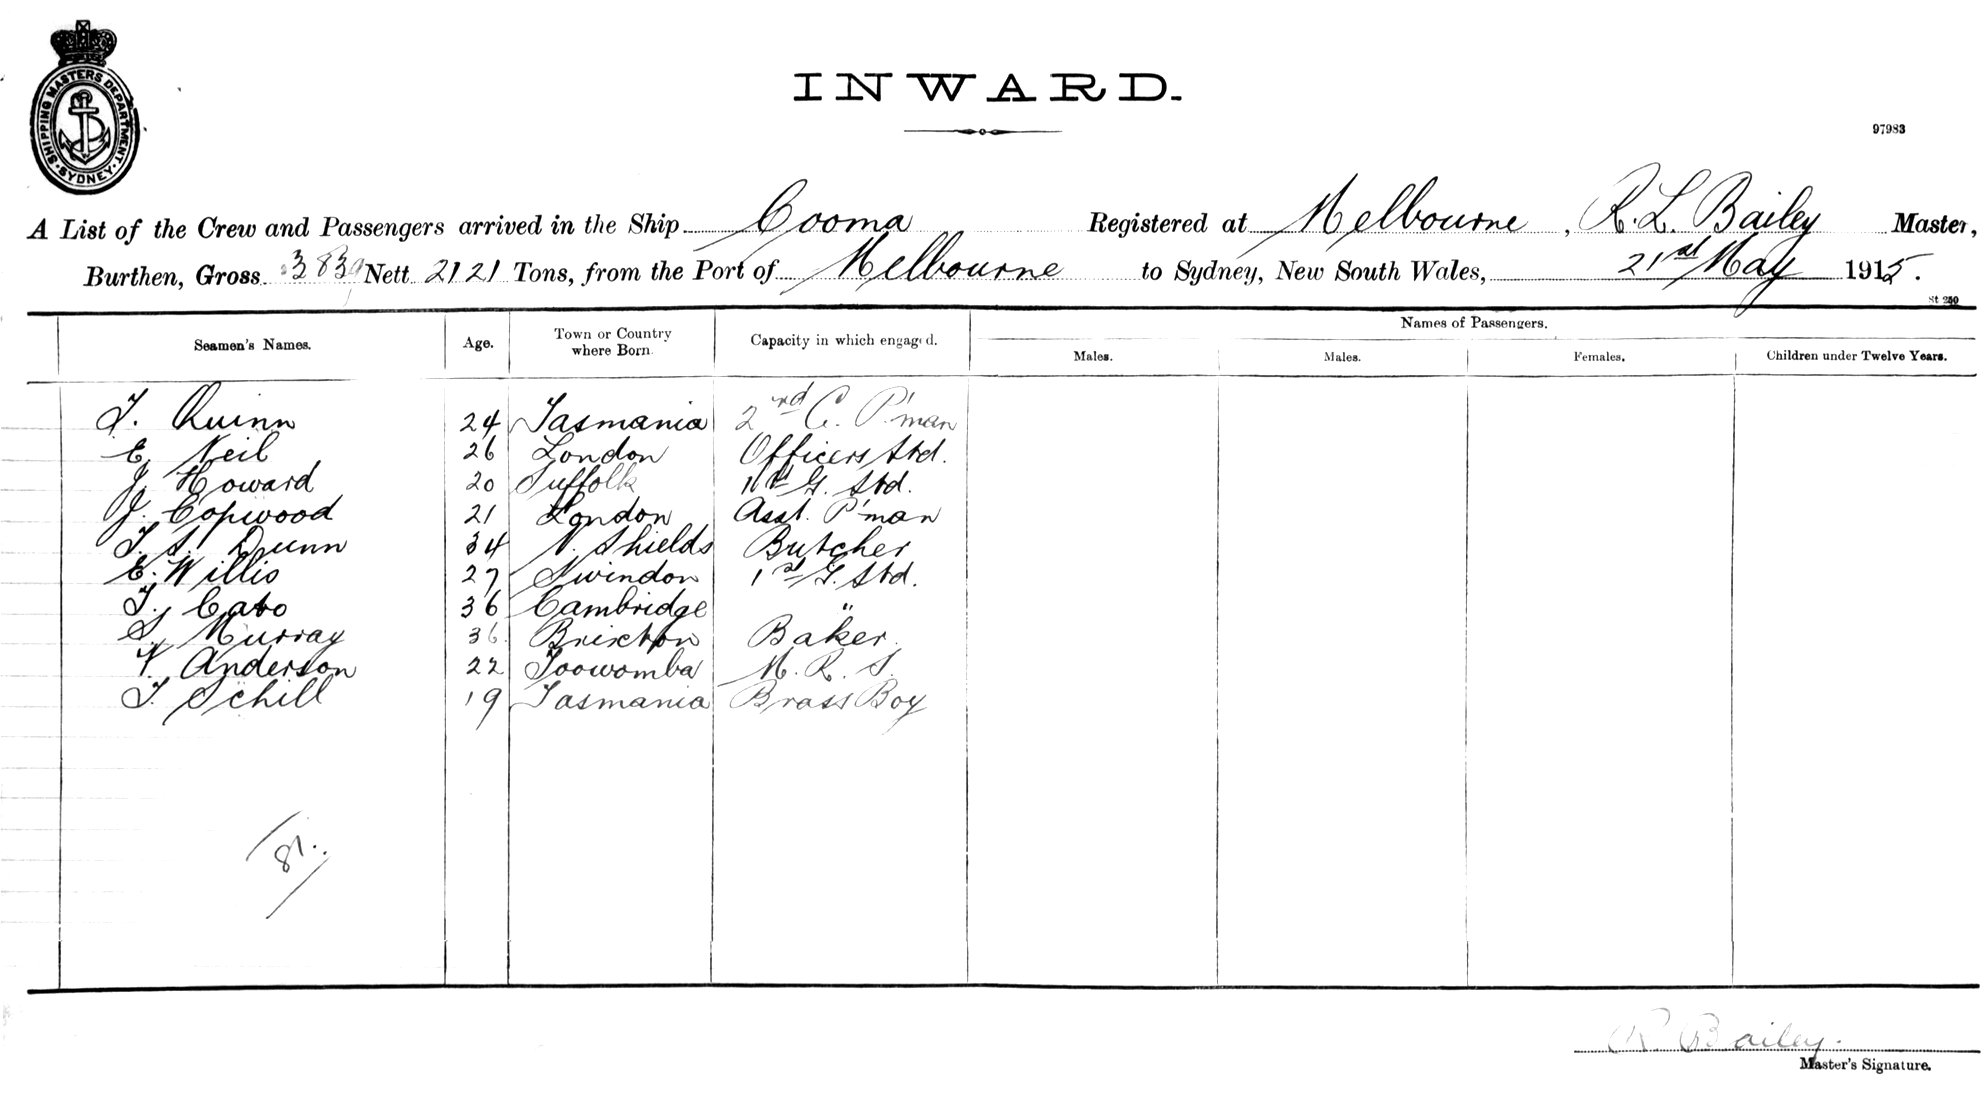 SHIPPING MASTERS DEPARTMENT · SYDNEY ·
INWARD.
97983
A List of the Crew and Passengers arrived in the Ship Cooma Registered at Melbourne, R. L. Bailey Master,
Burthen, Gross 3839 Nett 2121 Tons, from the Port of Melbourne to Sydney, New South Wales, 21st May 1915.
St 250
Names of Passengers.
Seamen's Names. Age. Town or Country where Born. Capacity in which engaged. Males. Males. Females. Children under Twelve Years.
T. Quinn 24 Tasmania 2nd C. P'man
E. Neil 26 London Officers Std.
J. Howard 20 Suffolk G. Std.
J. Copwood 21 London Asst. P'man
T. S. Dunn 34 N. Shields Butcher
E. Willis 27 Swindon 1st G. Std.
T. Cato 36 Cambridge "
S. Murray 36 Brixton Baker
Anderson 22 Toowomba M. R. S.
T. Schill 19 Tasmania Brass Boy
81
R Bailey.
Master's Signature.